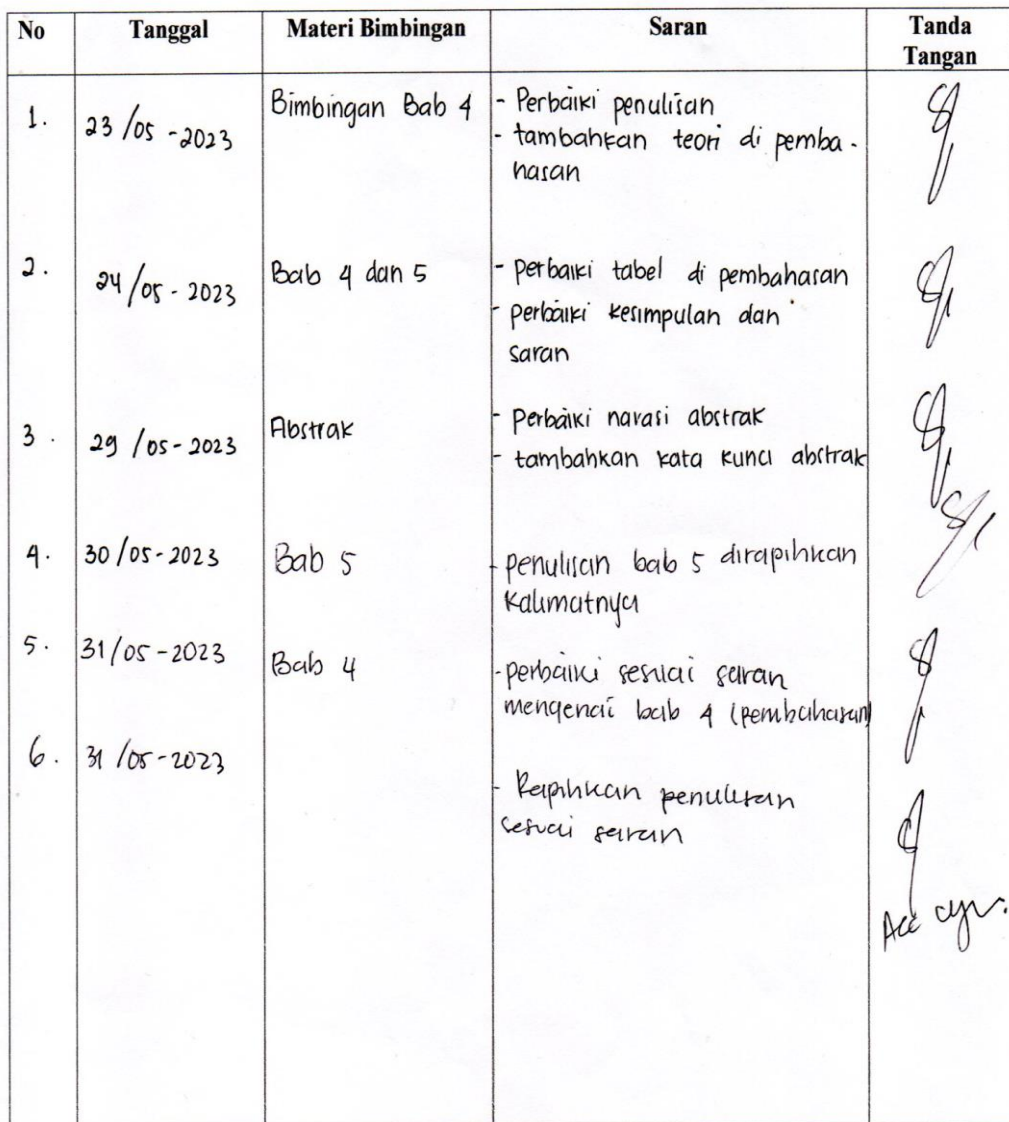 No Tanggal Materi Bimbingan Saran Tanda Tangan
1. 23/05-2023 Bimbingan Bab 4 - Perbaiki penulisan
- tambahkan teori di pemba-
hasan
2. 24/05-2023 Bab 4 dan 5 - perbaiki tabel di pembahasan
- perbaiki kesimpulan dan
saran
3. 29/05-2023 Abstrak - Perbaiki narasi abstrak
- tambahkan kata kunci abstrak
4. 30/05-2023 Bab 5 - penulisan bab 5 dirapihkan
kalimatnya
5. 31/05-2023 Bab 4 - perbaiki sesuai saran
mengenai bab 4 (pembahasan)
6. 31/05-2023 - Rapihkan penulisan
sesuai saran
Acc